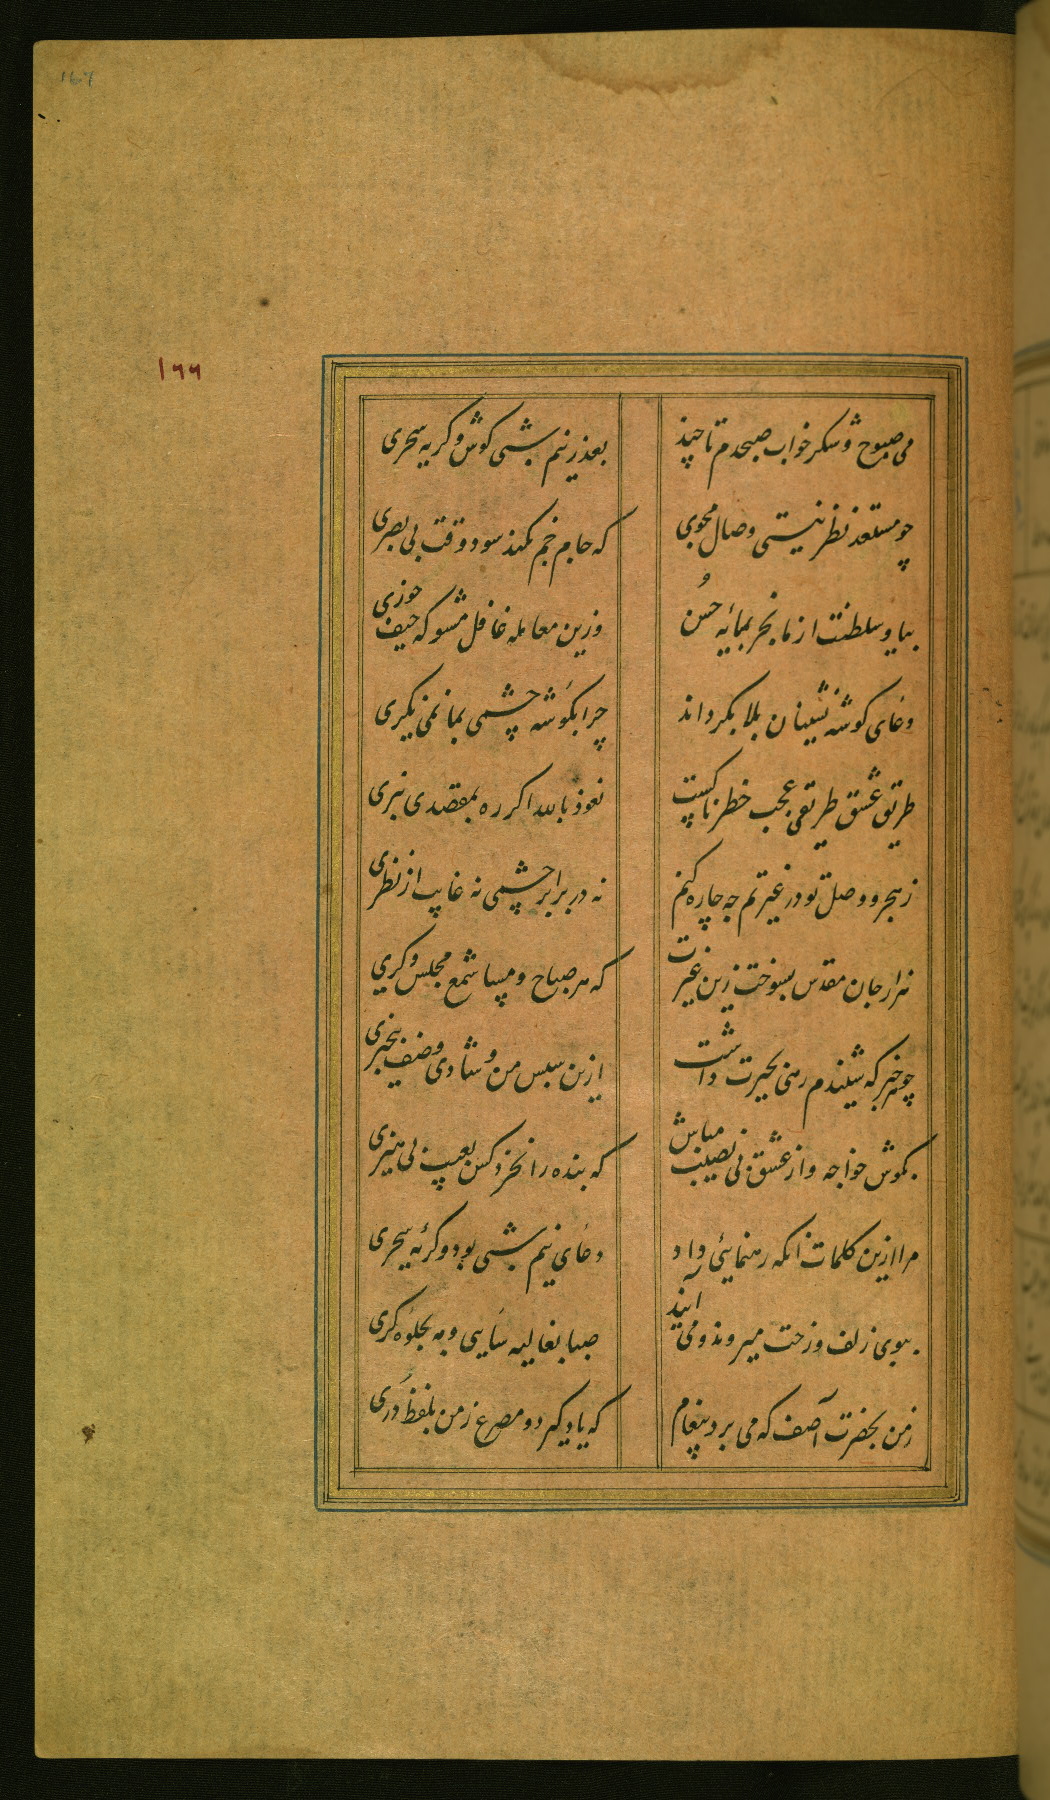 167
۱۶۶
می صبوح و شکر خواب صبحدم تا چند
بعذر نیم شبی کوش و کریه سحری
چو مستعد نظر نیستی وصال مجوی
که جام جم نکند سود وقت بی بصری
بیا و سلطنت از ما بخر بمایه حسن
وزین معامله غافل مشو که حیف خوری
دعای کوشه نشینان بلا بکرداند
چرا بکوشه چشمی بما نمی نکری
طریق عشق طریقی عجب خطرناکست
نعوذ بالله اکر ره بمقصدی نبری
ز هجر و وصل تو در غیرتم چه چاره کنم
نه در برابر چشمی نه غایب از نظری
هزار جان مقدس بسوخت زین غیرت
که هر صباح و مسا شمع مجلس دکری
چو هر خبر که شنیدم رهی بحیرت داشت
ازین سپس من و شادی وضیف بیخبری
بکوش خواجه و از عشق بی نصیب مباش
که بنده را نخرد کس بعیب بی هنری
مرا ازین کلمات آنکه رهنمایئی داد
دعای نیم شبی بود و کرئه سحری
ببوی زلف و رخت میروند و می آیند
صبا بغالیه سایی و به بجلوه کری
ز من بحضرت آصف که می برد پیغام
که یاد کیر دو مصرع ز من بلفظ دری